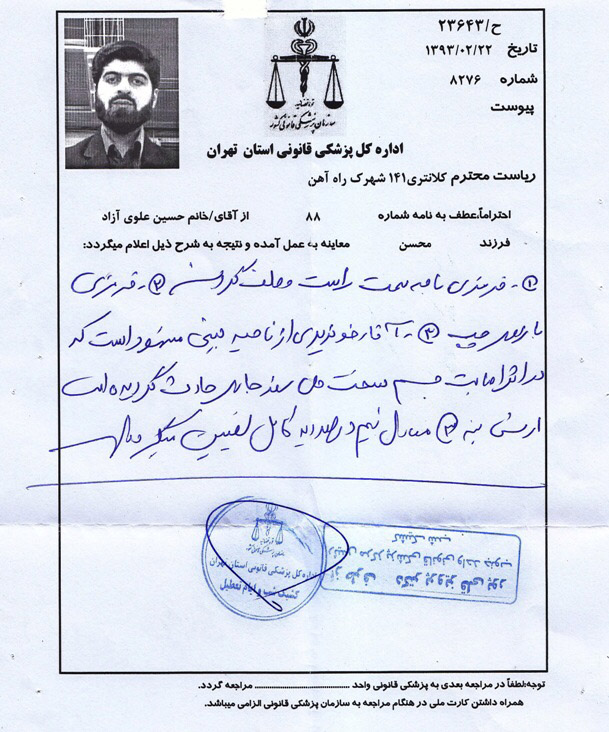 ح/۲۳۶۴۳
تاریخ ۱۳۹۳/۰۲/۲۲
شماره ۸۲۷۶
پیوست
قوه قضائیه
سازمان پزشکی قانونی کشور
اداره کل پزشکی قانونی استان تهران
ریاست محترم کلانتری۱۴۱ شهرک راه آهن
احتراماً،عطف به نامه شماره ۸۸ از آقای/خانم حسین علوی آزاد
فرزند محسن معاینه به عمل آمده و نتیجه به شرح ذیل اعلام میگردد:
۱- قرمزی ناحیه سمت راست و خلف گردن ۲- قرمزی
بازوی چپ ۳- آثار خونریزی از ناحیه بینی مشهود است که
در اثر اصابت جسم سخت حادث گردیده است
ارش بند ۳ معادل نیم درصد دیه کامل تعیین میگردد
اداره کل پزشکی قانونی استان تهران
کشیک شب و ایام تعطیل
از طرف دکتر پرویز قلی پور
رئیس مرکز پزشکی قانونی واحد جنوب
کشیک شب
توجه:لطفاً در مراجعه بعدی به پزشکی قانونی واحد ........................ مراجعه گردد.
همراه داشتن کارت ملی در هنگام مراجعه به سازمان پزشکی قانونی الزامی میباشد.